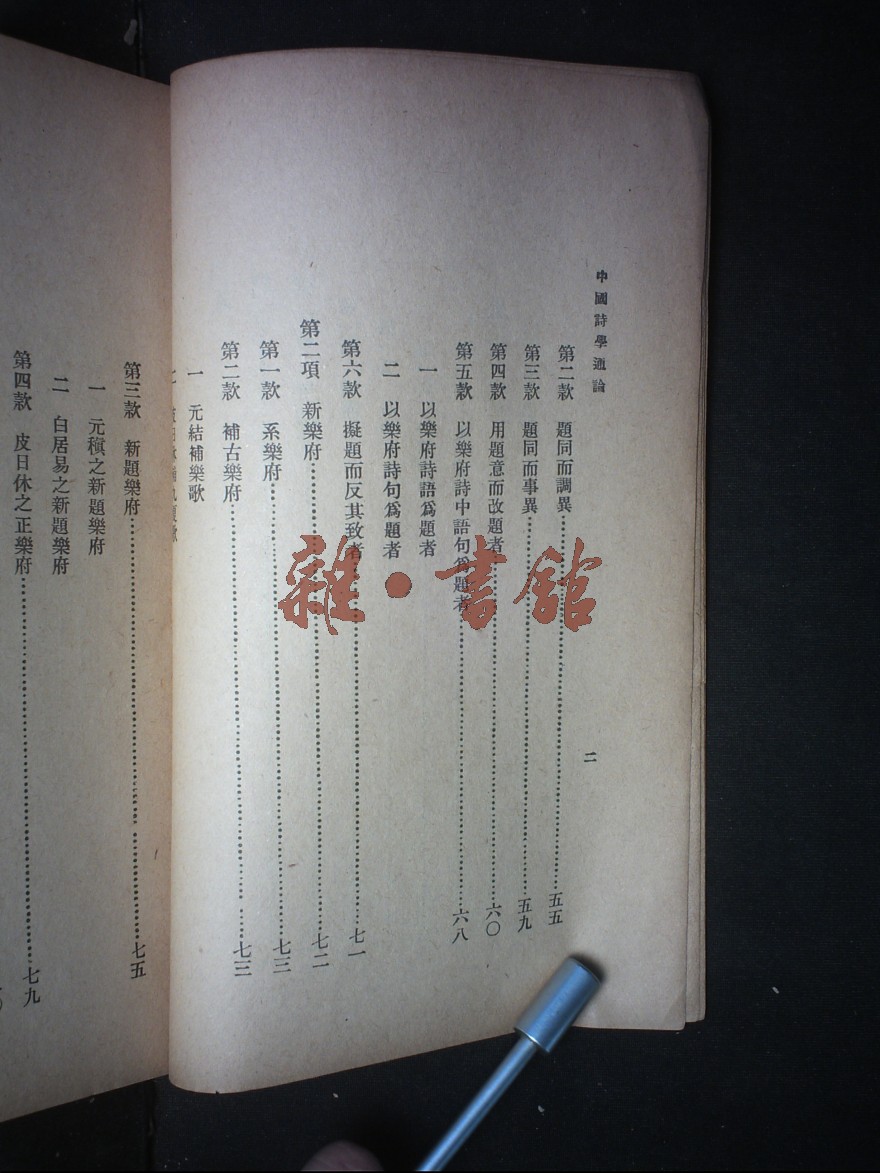 中國詩學通論
二
第二款　題同而調異……五五
第三款　題同而事異……五九
第四款　用題意而改題者……六〇
第五款　以樂府詩中語句爲題者……六八
一　以樂府詩語爲題者
二　以樂府詩句爲題者
第六款　擬題而反其致者……七一
第二項　新樂府……七二
第一款　系樂府……七三
第二款　補古樂府……七三
一　元結補樂歌
第三款　新題樂府……七五
一　元稹之新題樂府
二　白居易之新題樂府
第四款　皮日休之正樂府……七九
雜·書館